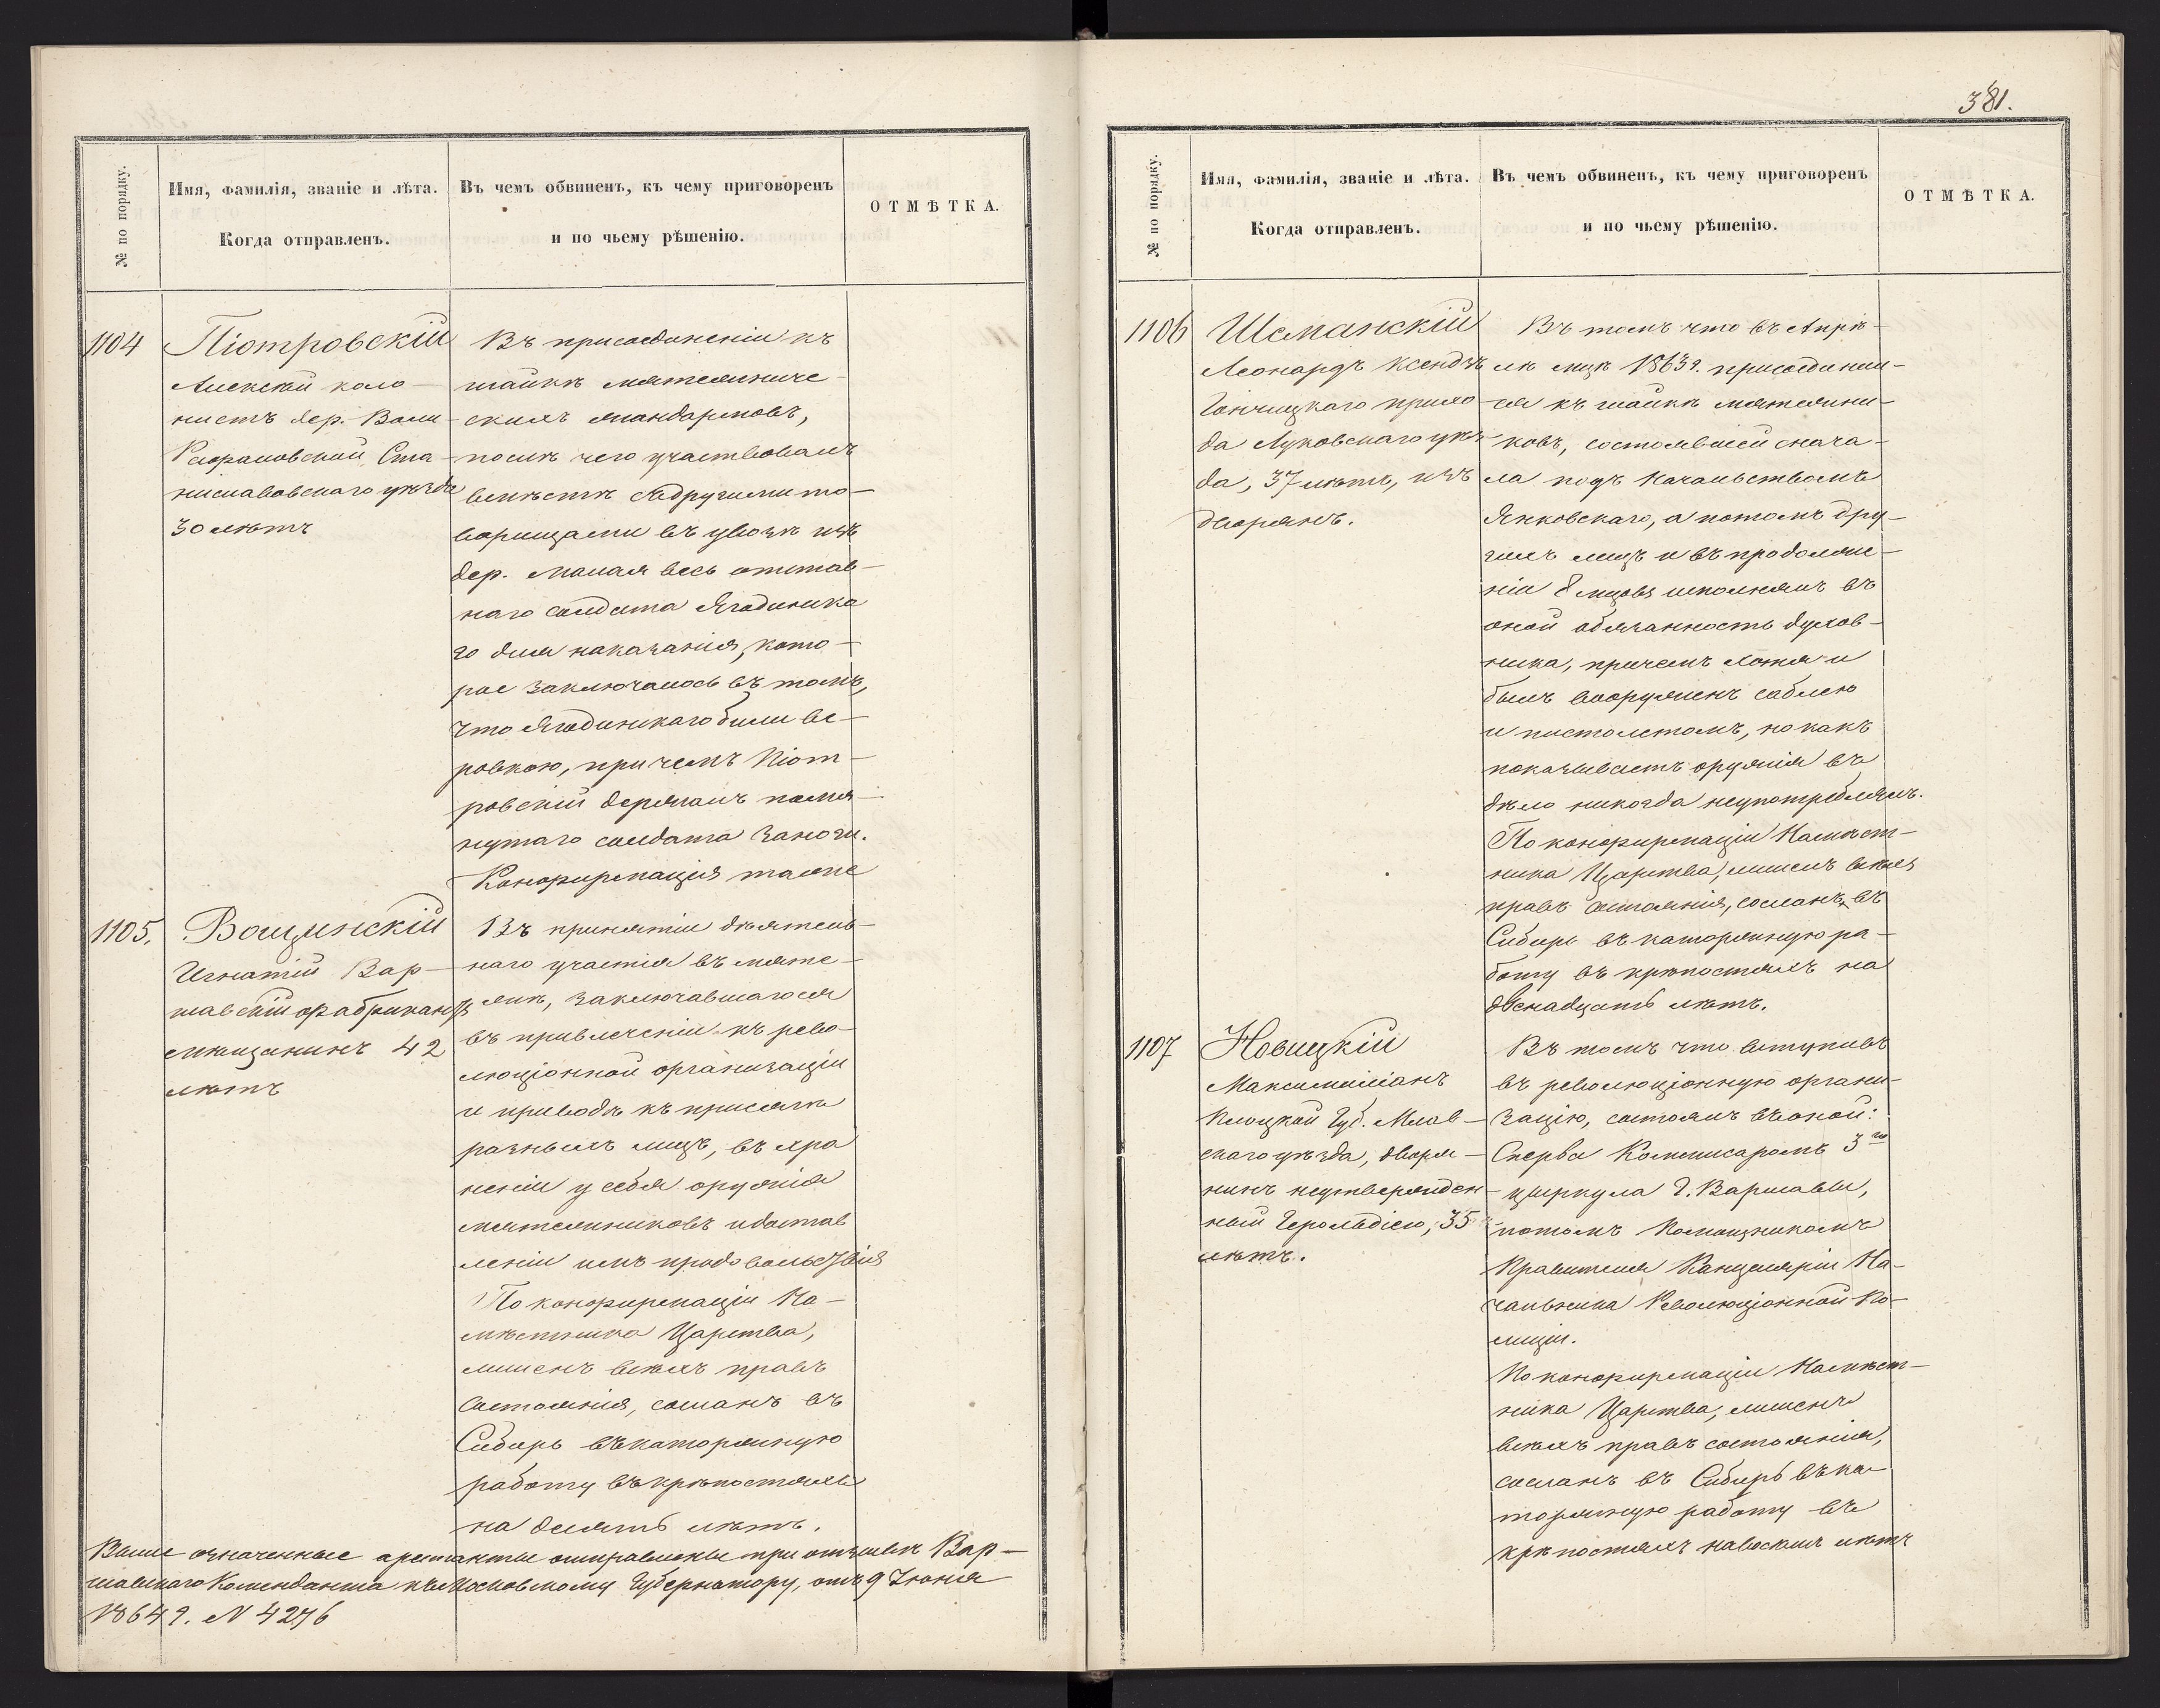 № по порядку.
Имя, фамилія, званіе и лѣта.
Когда отправленъ.
Въ чемъ обвиненъ, къ чему приговоренъ
и по чьему рѣшенію.
ОТМѢТКА.
1104
Піотровскій
Алексѣй коло-
нистъ дер. Воли
Рафаловской, Ста-
ниславовскаго уѣзда
30 лѣтъ
Въ присоединеніи къ
шайкѣ мятежниче-
скихъ жандармовъ,
послѣ чего участвовалъ
вмѣстѣ съ другими то-
варищами въ увозѣ изъ
дер. Малая весь отстав-
наго солдата Ягодинска
го для наказанія, кото-
рое заключалось въ томъ,
что Ягодинскаго били ве-
ровкою, при чемъ Піот-
ровскій держалъ помя-
нутаго солдата за ноги.
Конфирмація таже
1105.
Вощинскій
Игнатій Вар-
шавскій фабрикантъ
мѣщанинъ 42
лѣтъ
Въ принятіи дѣятель-
наго участія въ мяте-
жѣ, заключавшагося
въ привлеченіи къ рево-
люціонной организаціи
и приводѣ къ присягѣ
разныхъ лицъ, въ хра
неніи у себя оружія
мятежниковъ и достав
леніи имъ продовольствія
По конфирмаціи На-
мѣстника Царства,
лишенъ всѣхъ правъ
состоянія, сосланъ въ
Сибирь въ каторжную
работу въ крѣпостяхъ
на десять лѣтъ.
Выше означенные арестанты отправлены при отзывѣ Вар-
шавскаго Коменданта къ Московскому Губернатору, отъ 9 Іюня
1864 г. N 4276
381.
№ по порядку.
Имя, фамилія, званіе и лѣта.
Когда отправленъ.
Въ чемъ обвиненъ, къ чему приговоренъ
и по чьему рѣшенію.
ОТМѢТКА.
1106
Шеманскій
Леонардъ Ксендзъ
Гончицкаго прихо-
да Луковскаго уѣз-
да, 37 лѣтъ, изъ
дворянъ.
Въ томъ что въ Апрѣ-
лѣ мцѣ 1863 г. присоединил-
ся къ шайкѣ мятежни-
ковъ, состоявшей снача-
ла подъ начальствомъ
Янковскаго, а потомъ дру-
гихъ лицъ и въ продолже-
ніи 8 мцовъ исполнялъ въ
оной обязанность духов-
ника, причемъ хотя и
былъ вооруженъ саблею
и пистолетомъ, но какъ
показываетъ оружія въ
дѣло никогда неупотреблялъ.
По конфирмаціи Намѣст-
ника Царства, лишенъ всѣхъ
правъ состоянія, сосланъ въ
Сибирь въ каторжную ра-
боту въ крѣпостяхъ на
двѣнадцать лѣтъ.
1107
Новицкій
Максимиліанъ
Плоцкой Губ. Млав-
скаго уѣзда, дворя-
нинъ неутвержден-
ный Герольдіею, 35
лѣтъ.
Въ томъ что вступивъ
въ революціонную органи-
зацію, состоялъ въ оной:
Сперва Коммисаромъ 3го
циркула Г. Варшавы,
потомъ Помощникомъ
Правителя Канцеляріи На-
чальника Революціонной По-
лиціи.
По конфирмаціи Намѣст-
ника Царства, лишенъ
всѣхъ правъ состоянія,
сосланъ въ Сибирь въ ка-
торжную работу въ
крѣпостяхъ на восемь лѣтъ